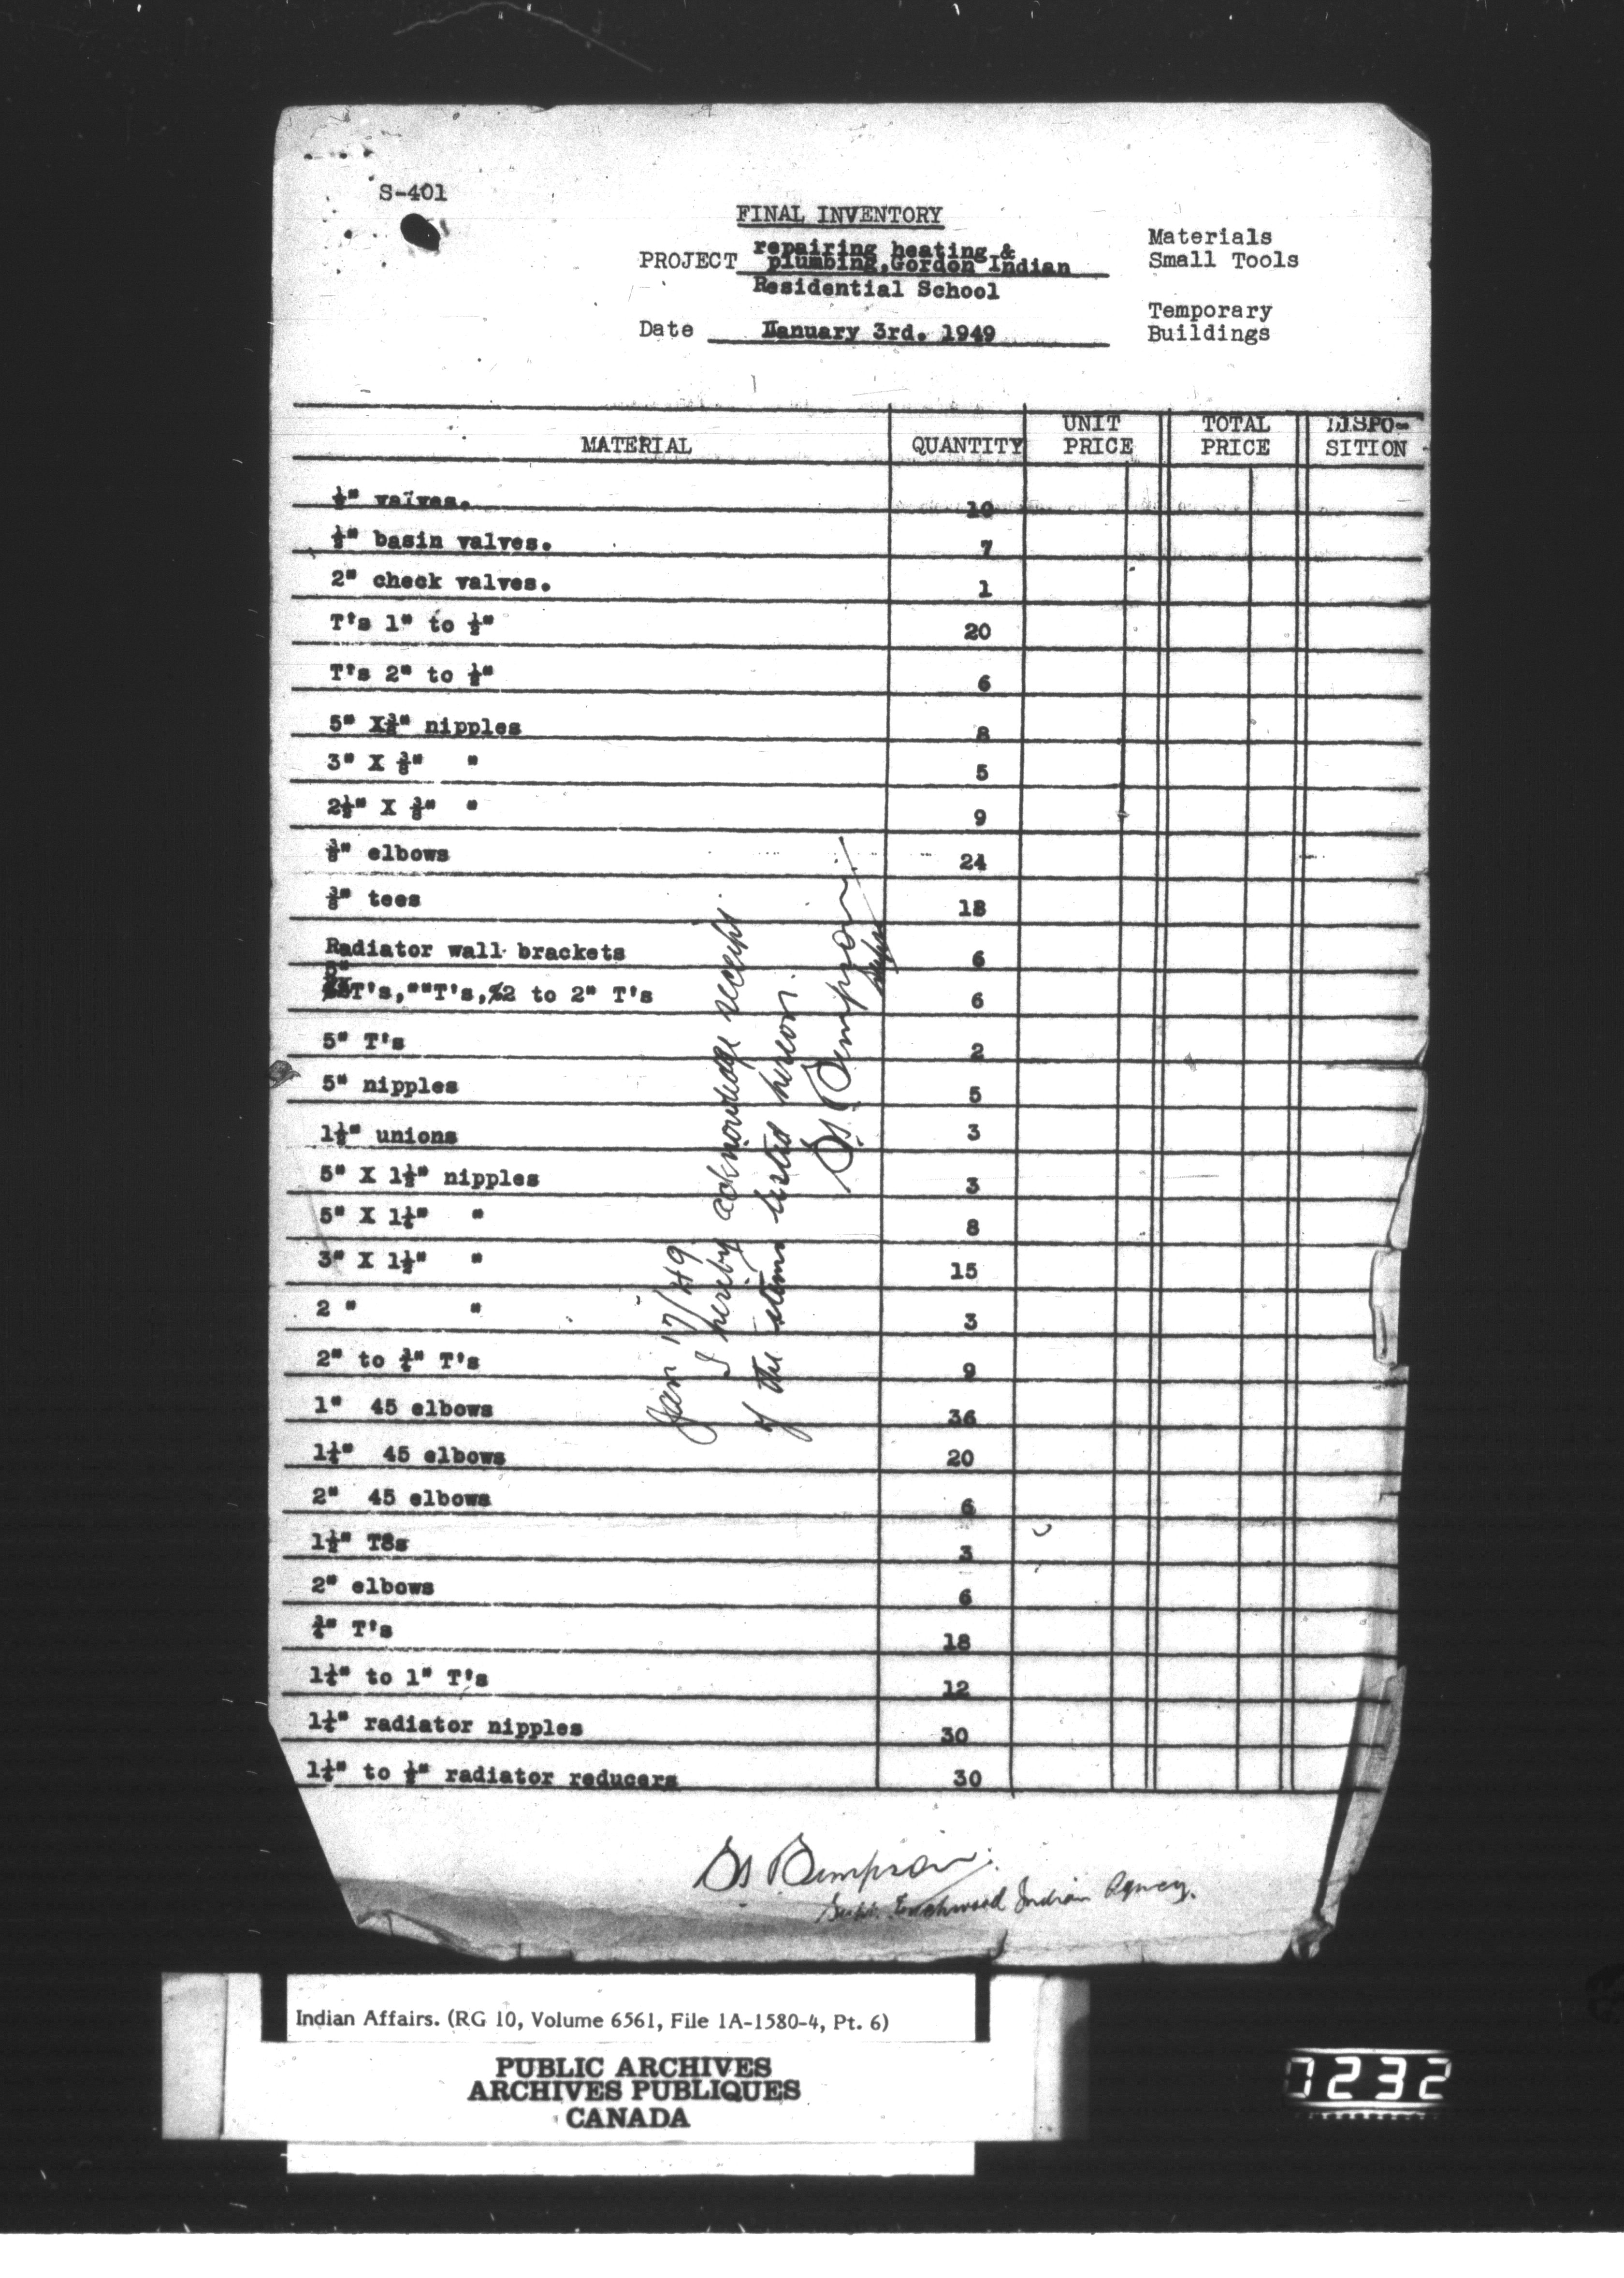 S-401
FINAL INVENTORY
Materials
Small Tools
PROJECT repairing heating &
plumbing,Gordon Indian
Residential School
Temporary
Buildings
Date January 3rd. 1949
MATERIAL QUANTITY UNIT PRICE TOTAL PRICE DISPO-SITION
½" valves. 10
½" basin valves. 7
2" check valves. 1
T's 1" to ½" 20
T's 2" to ½" 6
5" X⅜" nipples 8
3" X ⅜" " 5
2½" X ⅜" " 9
⅜" elbows 24
⅜" tees 18
Radiator wall brackets 6
T's,""T's, 2 to 2" T's 6
5" T's 2
5" nipples 5
1½" unions 3
5" X 1½" nipples 3
5" X 1¼" " 8
3" X 1½" " 15
2 " " 3
2" to ¾" T's 9
1" 45 elbows 36
1¼" 45 elbows 20
2" 45 elbows 6
1½" T8s 3
2" elbows 6
¾" T's 18
1¼" to 1" T's 12
1¼" radiator nipples 30
1¼" to ½" radiator reducers 30
Jan 17/49
I hereby acknowledge receipt
of the items listed hereon.
Simpson
Supt.
Simpson
Supt. Touchwood Indian Agency.
Indian Affairs. (RG 10, Volume 6561, File 1A-1580-4, Pt. 6)
PUBLIC ARCHIVES
ARCHIVES PUBLIQUES
CANADA
0232